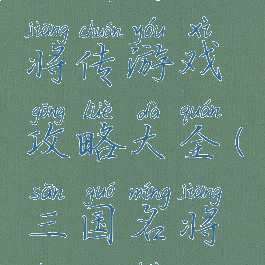 jiàng chuán yóu xì
将传游戏
gōng lüè dà quán
攻略大全(
sān guó míng jiàng
三国名将